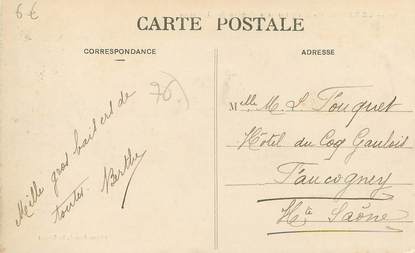 6€
CARTE POSTALE
CORRESPONDANCE
ADRESSE
76)
Mille gros baisers de
toutes. Berthe
Melle M. L. Fouquet
Hôtel du Coq Gaulois
Faucogney
Hte Saône